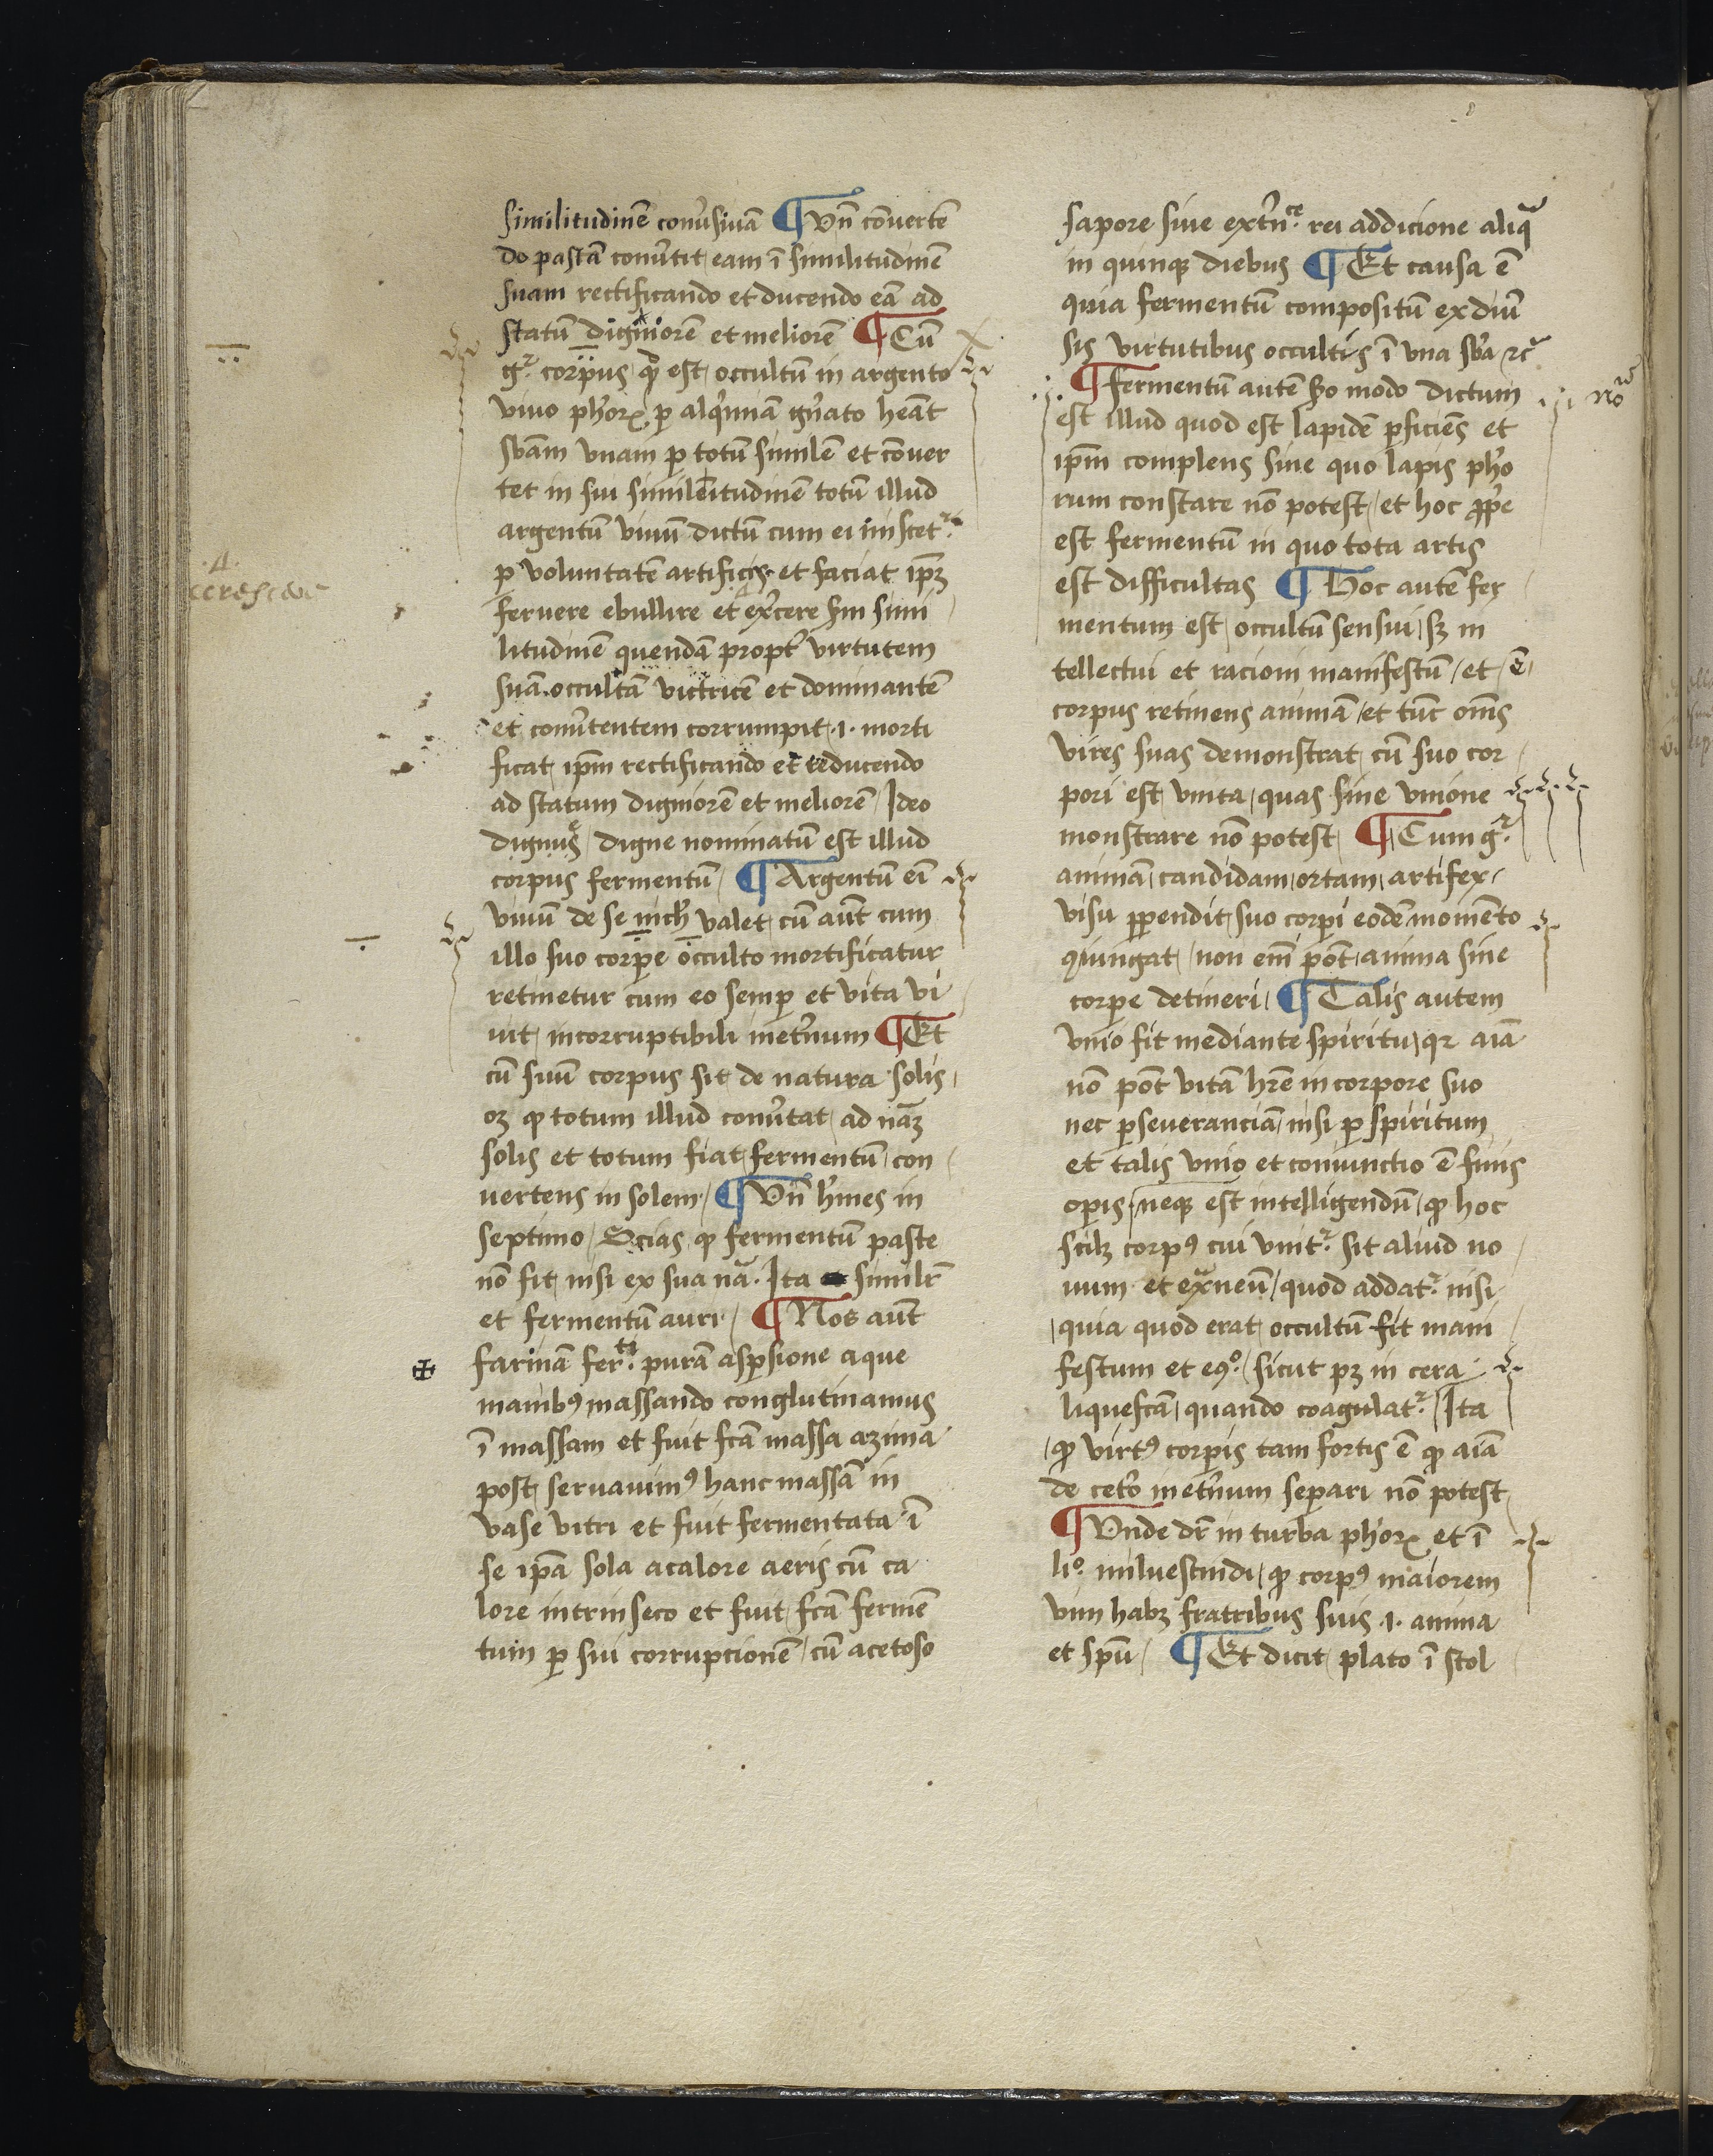 similitudinē conũsiuā ¶ Vñ cōuerte
do pastā conũtit eam ī similitudinē
suam rectificando et ducendo eā ad
statū digniorē et meliorē ¶ Cū
gͬ corpus qđ est occultū in argento
viuo ph̄oꝝ ꝑ alq̄miā gn̄ato heāt
sb̄am vnam ꝑ totū similē et cōuer
tet in sui similitudinē totū illud
argentū viuū dictū cum ei miscetͬ
ꝑ voluntatē artificis et faciat ip̄ꝫ
feruere ebullire et exc̄ere scḋm simi
litudinē quendā propt̄ virtutem
suā occultā victricē et dominantē
et conũtentem corrumpit .i. morti
ficat ip̄m rectificando et reducendo
ad statum digniorē et meliorē Ideo
digne nominatū est illud
corpus fermentū ¶ Argentū eī
viuū de se nich̄ valet cū aūt cum
illo suo corꝑe occulto mortificatur
retinetur cum eo semꝑ et vita vi
uit incorruptibili inet̄num ¶ Et
cū suū corpus sit de natura solis
oꝫ ꝙ totum illud conũtat ad nāꝫ
solis et totum fiat fermentū con
uertens in solem ¶ Vñ h̄mes in
septimo Scias ꝙ fermentū paste
nō fit nisi ex sua nā. Ita similr̄
et fermentū auri ¶ Nos aūt
farinā ferᵗⁱ purā asꝑsione aque
manibꝰ massando conglutinamus
ī massam et fuit fcā massa azima
post seruauimꝰ hanc massā in
vase vitri et fuit fermentata ī
se ip̄a sola a calore aeris cū ca
lore intrinseco et fuit fcā fermē
tum ꝑ sui corrupcionē cū acetoso
sapore siue ext̄nᶜᵉ rei addicione aliqͣ
in quinqꝫ diebus ¶ Et causa ē
quia fermentū compositū ex diũ
sis virtutibus occultis ī vna sb̄a ⁊c̄
¶ fermentū autē scḋo modo dictum
est illud quod est lapidē ꝑficiēs et
ip̄m complens sine quo lapis ph̄o
rum constare nō potest et hoc ꝓp̄e
est fermentū in quo tota artis
est difficultas ¶ Hoc autē fer
mentum est occultū sensui sꝫ in
tellectui et racioni manifestū et ē
corpus retinens animā et tūc om̄s
vires suas demonstrat cū suo cor
pori est vnita quas sine vnione
monstrare nō potest ¶ Cum gͬ
animā candidam ortam artifex
visu ꝑpendit suo corpi eodē momēto
ꝯiungat non em̄ pōt anima sine
corꝑe detineri ¶ Talis autem
vnio fit mediante spiritu qꝛ aīā
nō pōt vitā hr̄e in corpore suo
nec ꝑseueranciā nisi ꝑ spiritum
et talis vnio et coniunctio ē finis
oꝑis neqꝫ est intelligendū ꝙ hoc
scilꝫ corpꝰ cui vnitͬ sit aliud no
uum et exͣneū quod addatͬ nisi
quia quod erat occultū fit mani
festum et eꝯᵒ sicut pꝫ in cera
liquefcā quando coagulatͬ Ita
ꝙ virtꝰ corꝑis tam fortis ē ꝙ aīā
de cet̄o inet̄num seꝑari nō potest
¶ Vnde dr̄ in turba ph̄oꝝ et ī
liᵒ miluescindi ꝙ corpꝰ maiorem
vim habꝫ fratribus suis .i. anima
et sp̄u ¶ Et dicit plato ī stol